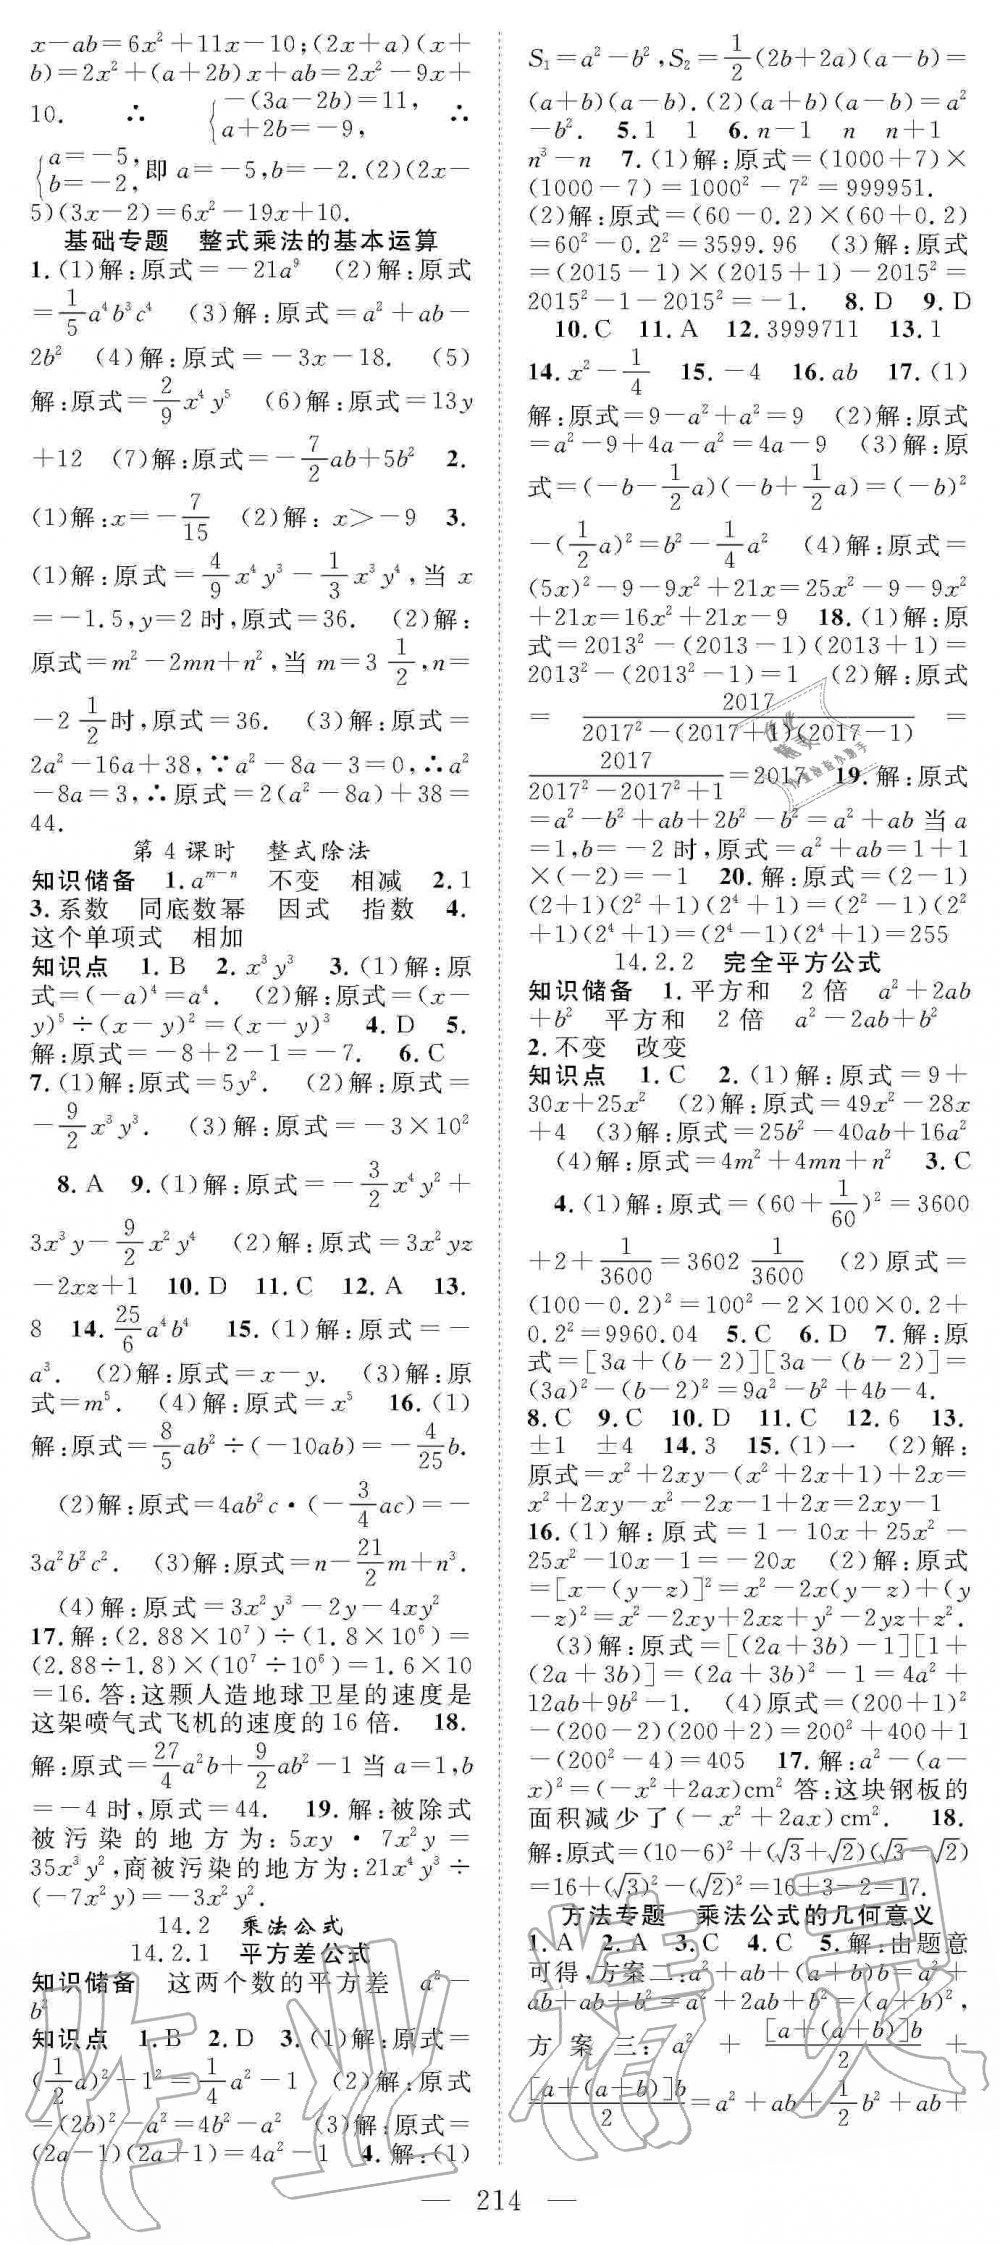 x-ab=6x²+11x-10;(2x+a)(x+
b)=2x²+(a+2b)x+ab=2x²-9x+
10. ∴ {-(3a-2b)=11, a+2b=-9, ∴
{a=-5, b=-2, 即 a=-5,b=-2.(2)(2x-
5)(3x-2)=6x²-19x+10.
基础专题 整式乘法的基本运算
1.(1)解:原式=-21a⁹ (2)解:原式
=1/5 a⁴b³c⁴ (3)解:原式=a²+ab-
2b² (4)解:原式=-3x-18. (5)
解:原式=2/9 x⁴y⁵ (6)解:原式=13y
+12 (7)解:原式=-7/2 ab+5b² 2.
(1)解:x=-7/15 (2)解: x>-9 3.
(1)解:原式=4/9 x⁴y³-1/3 x³y⁴,当 x
=-1.5,y=2 时,原式=36. (2)解:
原式=m²-2mn+n²,当 m=3 1/2,n=
-2 1/2 时,原式=36. (3)解:原式=
2a²-16a+38,∵a²-8a-3=0,∴a²
-8a=3,∴原式=2(a²-8a)+38=
44.
第 4 课时 整式除法
知识储备 1.aᵐ⁻ⁿ 不变 相减 2.1
3.系数 同底数幂 因式 指数 4.
这个单项式 相加
知识点 1.B 2.x³y³ 3.(1)解:原
式=(-a)⁴=a⁴. (2)解:原式=(x-
y)⁵÷(x-y)²=(x-y)³ 4.D 5.
解:原式=-8+2-1=-7. 6.C
7.(1)解:原式=5y². (2)解:原式=
-9/2 x³y³. (3)解:原式=-3×10²
8.A 9.(1)解:原式=-3/2 x⁴y²+
3x³y-9/2 x²y⁴ (2)解:原式=3x²yz
-2xz+1 10.D 11.C 12.A 13.
8 14.25/6 a⁴b⁴ 15.(1)解:原式=-
a³. (2)解:原式=x-y. (3)解:原
式=m⁵. (4)解:原式=x⁵ 16.(1)
解:原式=8/5 ab²÷(-10ab)=-4/25 b.
(2)解:原式=4ab²c·(-3/4 ac)=-
3a²b²c². (3)解:原式=n-21/2 m+n³.
(4)解:原式=3x²y³-2y-4xy²
17.解:(2.88×10⁷)÷(1.8×10⁶)=
(2.88÷1.8)×(10⁷÷10⁶)=1.6×10
=16.答:这颗人造地球卫星的速度是
这架喷气式飞机的速度的16倍. 18.
解:原式=27/4 a²b+9/2 ab²-1 当 a=1,b
=-4 时,原式=44. 19.解:被除式
被污染的地方为:5xy·7x²y=
35x³y²,商被污染的地方为:21x⁴y³÷
(-7x²y)=-3x²y².
14.2 乘法公式
14.2.1 平方差公式
知识储备 这两个数的平方差 a²-
b²
知识点 1.B 2.D 3.(1)解:原式=
(1/2 a)²-1²=1/4 a²-1 (2)解:原式
=(2b)²-a²=4b²-a² (3)解:原式=
(2a-1)(2a+1)=4a²-1 4.解:(1)
S₁=a²-b²,S₂=1/2(2b+2a)(a-b)=
(a+b)(a-b).(2)(a+b)(a-b)=a²
-b². 5.1 1 6.n-1 n n+1
n³-n 7.(1)解:原式=(1000+7)×
(1000-7)=1000²-7²=999951.
(2)解:原式=(60-0.2)×(60+0.2)
=60²-0.2²=3599.96 (3)解:原式
=(2015-1)×(2015+1)-2015²=
2015²-1-2015²=-1. 8.D 9.D
10.C 11.A 12.3999711 13.1
14.x²-1/4 15.-4 16.ab 17.(1)
解:原式=9-a²+a²=9 (2)解:原式
=a²-9+4a-a²=4a-9 (3)解:原
式=(-b-1/2 a)(-b+1/2 a)=(-b)²
-(1/2 a)²=b²-1/4 a² (4)解:原式=
(5x)²-9-9x²+21x=25x²-9-9x²
+21x=16x²+21x-9 18.(1)解:原
式=2013²-(2013-1)(2013+1)=
2013²-(2013²-1)=1 (2)解:原式
= 2017/(2017²-(2017+1)(2017-1)) =
2017/(2017²-2017²+1)=2017 19.解:原式
=a²-b²+ab+2b²-b²=a²+ab 当 a
=1,b=-2 时,原式=a²+ab=1+1
×(-2)=-1 20.解:原式=(2-1)
(2+1)(2²+1)(2⁴+1)=(2²-1)(2²
+1)(2⁴+1)=(2⁴-1)(2⁴+1)=255
14.2.2 完全平方公式
知识储备 1.平方和 2倍 a²+2ab
+b² 平方和 2倍 a²-2ab+b²
2.不变 改变
知识点 1.C 2.(1)解:原式=9+
30x+25x² (2)解:原式=49x²-28x
+4 (3)解:原式=25b²-40ab+16a²
(4)解:原式=4m²+4mn+n² 3.C
4.(1)解:原式=(60+1/60)²=3600
+2+1/3600=3602 1/3600 (2)原式=
(100-0.2)²=100²-2×100×0.2+
0.2²=9960.04 5.C 6.D 7.解:原
式=[3a+(b-2)][3a-(b-2)]=
(3a)²-(b-2)²=9a²-b²+4b-4.
8.C 9.C 10.D 11.C 12.6 13.
±1 ±4 14.3 15.(1)一 (2)解:
原式=x²+2xy-(x²+2x+1)+2x=
x²+2xy-x²-2x-1+2x=2xy-1
16.(1)解:原式=1-10x+25x²-
25x²-10x-1=-20x (2)解:原式
=[x-(y-z)]²=x²-2x(y-z)+(y
-z)²=x²-2xy+2xz+y²-2yz+z².
(3)解:原式=[(2a+3b)-1][1+
(2a+3b)]=(2a+3b)²-1=4a²+
12ab+9b²-1. (4)原式=(200+1)²
-(200-2)(200+2)=200²+400+1
-(200²-4)=405 17.解:a²-(a-
x)²=(-x²+2ax)cm² 答:这块钢板的
面积减少了(-x²+2ax)cm². 18.
解:原式=(10-6)²+(√3+√2)(√3-√2)
=16+(√3)²-(√2)²=16+3-2=17.
方法专题 乘法公式的几何意义
1.A 2.A 3.C 4.C 5.解:由题意
可得,方案二:a²+ab+(a+b)b=a²+
ab+ab+b²=a²+2ab+b²=(a+b)²,
方案三:a²+[a+(a+b)]b/2+
[a+(a+b)]b/2=a²+ab+1/2 b²+ab+
— 214 —
作业精灵